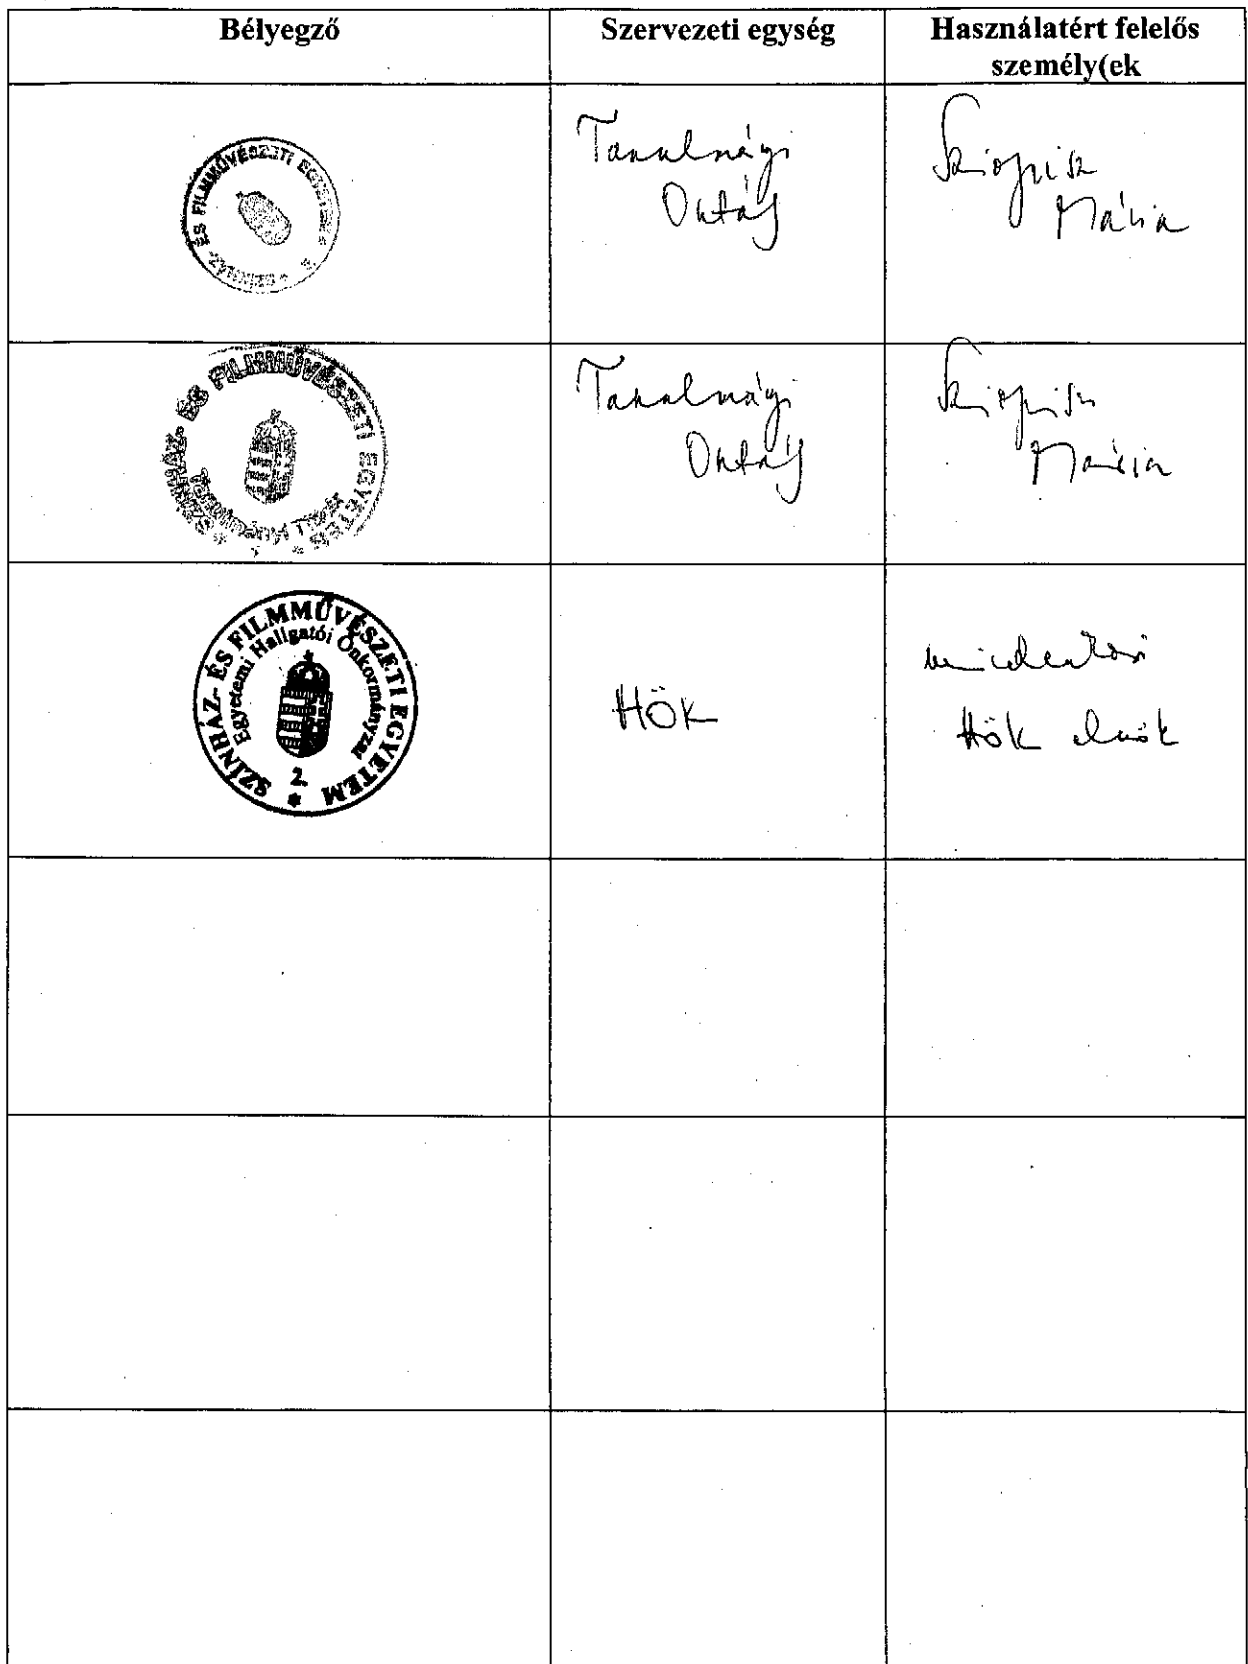 Bélyegző
Szervezeti egység
Használatért felelős
személy(ek
SZÍNHÁZ- ÉS FILMMŰVÉSZETI EGYETEM *
Tanulmányi
Osztály
Mária
SZÍNHÁZ- ÉS FILMMŰVÉSZETI EGYETEM *
Tanulmányi
Tanulmányi
Osztály
Mária
SZÍNHÁZ- ÉS FILMMŰVÉSZETI EGYETEM *
Egyetemi Hallgatói Önkormányzat
2.
HÖK
mindenkori
HÖK elnök